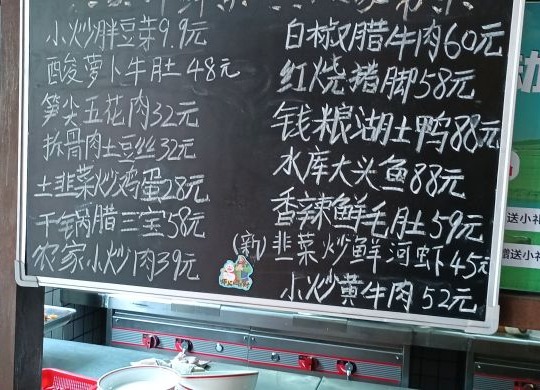 小炒胖豆芽9.9元
酸萝卜牛肚48元
笋尖五花肉32元
拆骨肉土豆丝32元
土韭菜炒鸡蛋28元
干锅腊三宝58元
农家小炒肉39元
白椒腊牛肉60元
红烧猪脚58元
钱粮湖土鸭88元
水库大头鱼88元
香辣鲜毛肚59元
(新)韭菜炒鲜河虾45元
小炒黄牛肉52元
送小礼
赠送小礼